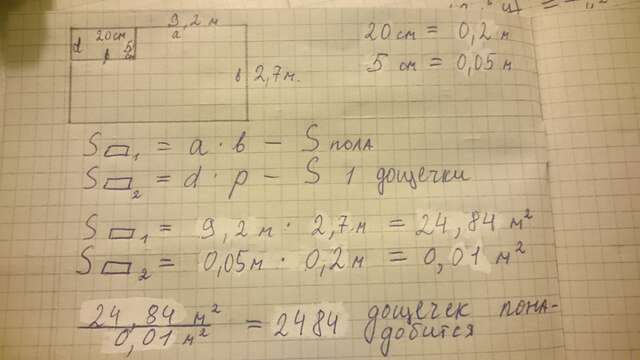 9,2 м
a
20см
d
5 см
p
в 2,7м.
20 см = 0,2 м
5 см = 0,05 м
S▭₁ = a · в – S пола
S▭₂ = d · p – S 1 дощечки
S▭₁ = 9,2 м · 2,7 м = 24,84 м²
S▭₂ = 0,05м · 0,2 м = 0,01 м²
24,84 м²
0,01 м²
= 2484 дощечек пона-
добится